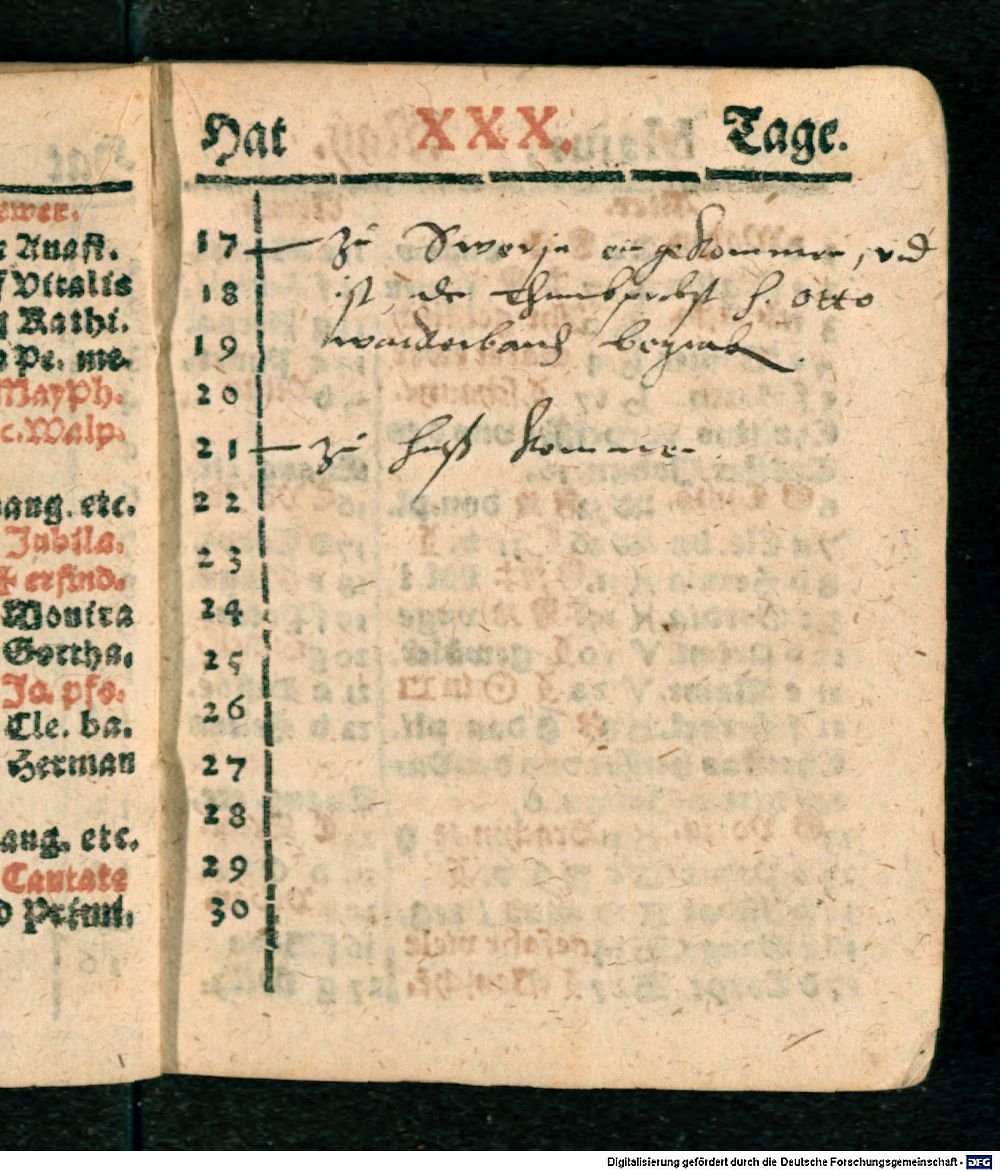 Hat XXX. Tage.
ewer.
Anast.
Vitalis
Kathi.
Pe. me.
MayPh.
c. Walp.
ang. etc.
Jubila.
erfind.
Monica
Gottha.
Ja. pfo.
Cle. ba.
Herman
ang. etc.
Cantate
Primi.
17 zu Swerin ein gekommen, vnd
18 ist der Thumbprobst H. Otto
19
20
21 zu Hauß kommen
22
23
24
25
26
27
28
29
30
Digitalisierung gefördert durch die Deutsche Forschungsgemeinschaft - DFG